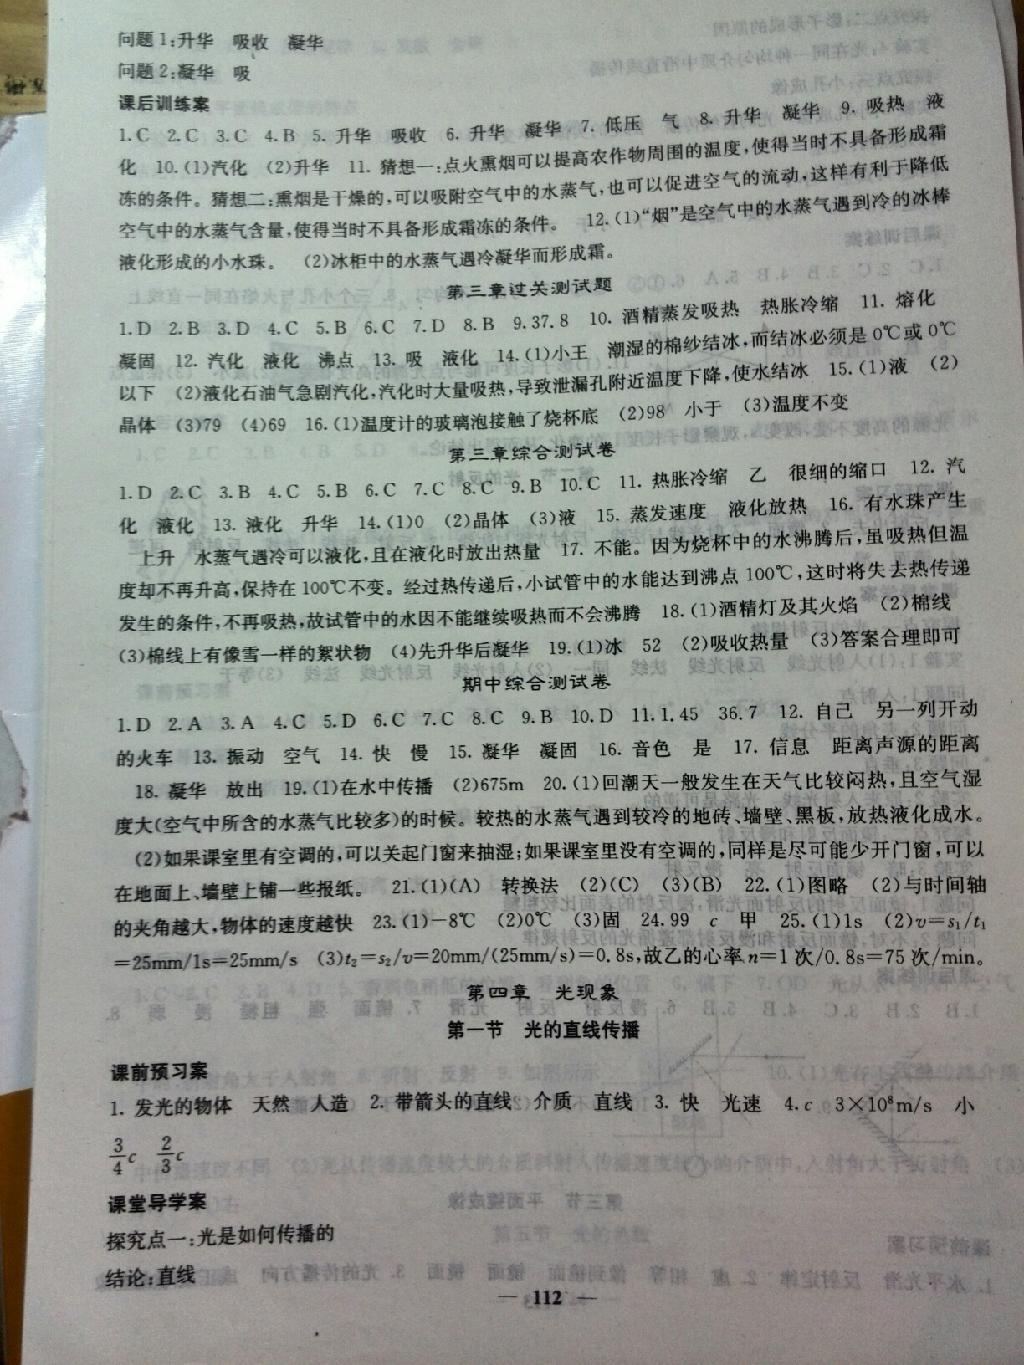 问题1:升华 吸收 凝华
问题2:凝华 吸
课后训练案
1.C 2.C 3.C 4.B 5. 升华 吸收 6. 升华 凝华 7. 低压 气 8. 升华 凝华 9. 吸热 液
化 10.(1)汽化 (2)升华 11. 猜想一:点火熏烟可以提高农作物周围的温度,使得当时不具备形成霜
冻的条件。猜想二:熏烟是干燥的,可以吸附空气中的水蒸气,也可以促进空气的流动,这样有利于降低
空气中的水蒸气含量,使得当时不具备形成霜冻的条件。 12.(1)“烟”是空气中的水蒸气遇到冷的冰棒
液化形成的小水珠。 (2)冰柜中的水蒸气遇冷凝华而形成霜。
第三章过关测试题
1.D 2.B 3.D 4.C 5.B 6.C 7.D 8.B 9.37.8 10. 酒精蒸发吸热 热胀冷缩 11. 熔化
凝固 12. 汽化 液化 沸点 13. 吸 液化 14.(1)小王 潮湿的棉纱结冰,而结冰必须是0℃或0℃
以下 (2)液化石油气急剧汽化,汽化时大量吸热,导致泄漏孔附近温度下降,使水结冰 15.(1)液 (2)
晶体 (3)79 (4)69 16.(1)温度计的玻璃泡接触了烧杯底 (2)98 小于 (3)温度不变
第三章综合测试卷
1.D 2.C 3.B 4.C 5.B 6.C 7.C 8.C 9.B 10.C 11. 热胀冷缩 乙 很细的缩口 12. 汽
化 液化 13. 液化 升华 14.(1)0 (2)晶体 (3)液 15. 蒸发速度 液化放热 16. 有水珠产生
上升 水蒸气遇冷可以液化,且在液化时放出热量 17. 不能。因为烧杯中的水沸腾后,虽吸热但温
度却不再升高,保持在100℃不变。经过热传递后,小试管中的水能达到沸点100℃,这时将失去热传递
发生的条件,不再吸热,故试管中的水因不能继续吸热而不会沸腾 18.(1)酒精灯及其火焰 (2)棉线
(3)棉线上有像雪一样的絮状物 (4)先升华后凝华 19.(1)冰 52 (2)吸收热量 (3)答案合理即可
期中综合测试卷
1.D 2.A 3.A 4.C 5.D 6.C 7.C 8.C 9.B 10.D 11.1.45 36.7 12. 自己 另一列开动
的火车 13. 振动 空气 14. 快 慢 15. 凝华 凝固 16. 音色 是 17. 信息 距离声源的距离
18. 凝华 放出 19.(1)在水中传播 (2)675m 20.(1)回潮天一般发生在天气比较闷热,且空气湿
度大(空气中所含的水蒸气比较多)的时候。较热的水蒸气遇到较冷的地砖、墙壁、黑板,放热液化成水。
(2)如果课室里有空调的,可以关起门窗来抽湿;如果课室里没有空调的,同样是尽可能少开门窗,可以
在地面上、墙壁上铺一些报纸。 21.(1)(A) 转换法 (2)(C) (3)(B) 22.(1)图略 (2)与时间轴
的夹角越大,物体的速度越快 23.(1)-8℃ (2)0℃ (3)固 24.99 c 甲 25.(1)1s (2)v=s₁/t₁
=25mm/1s=25mm/s (3)t₂=s₂/v=20mm/(25mm/s)=0.8s,故乙的心率n=1次/0.8s=75次/min。
第四章 光现象
第一节 光的直线传播
课前预习案
1. 发光的物体 天然 人造 2. 带箭头的直线 介质 直线 3. 快 光速 4.c 3×10⁸m/s 小
3/4c 2/3c
课堂导学案
探究点一:光是如何传播的
结论:直线
— 112 —